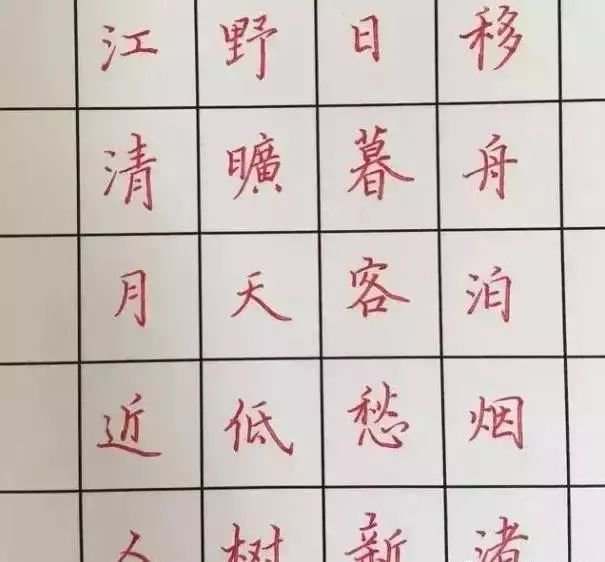 移舟泊烟渚
日暮客愁新
野曠天低树
江清月近人